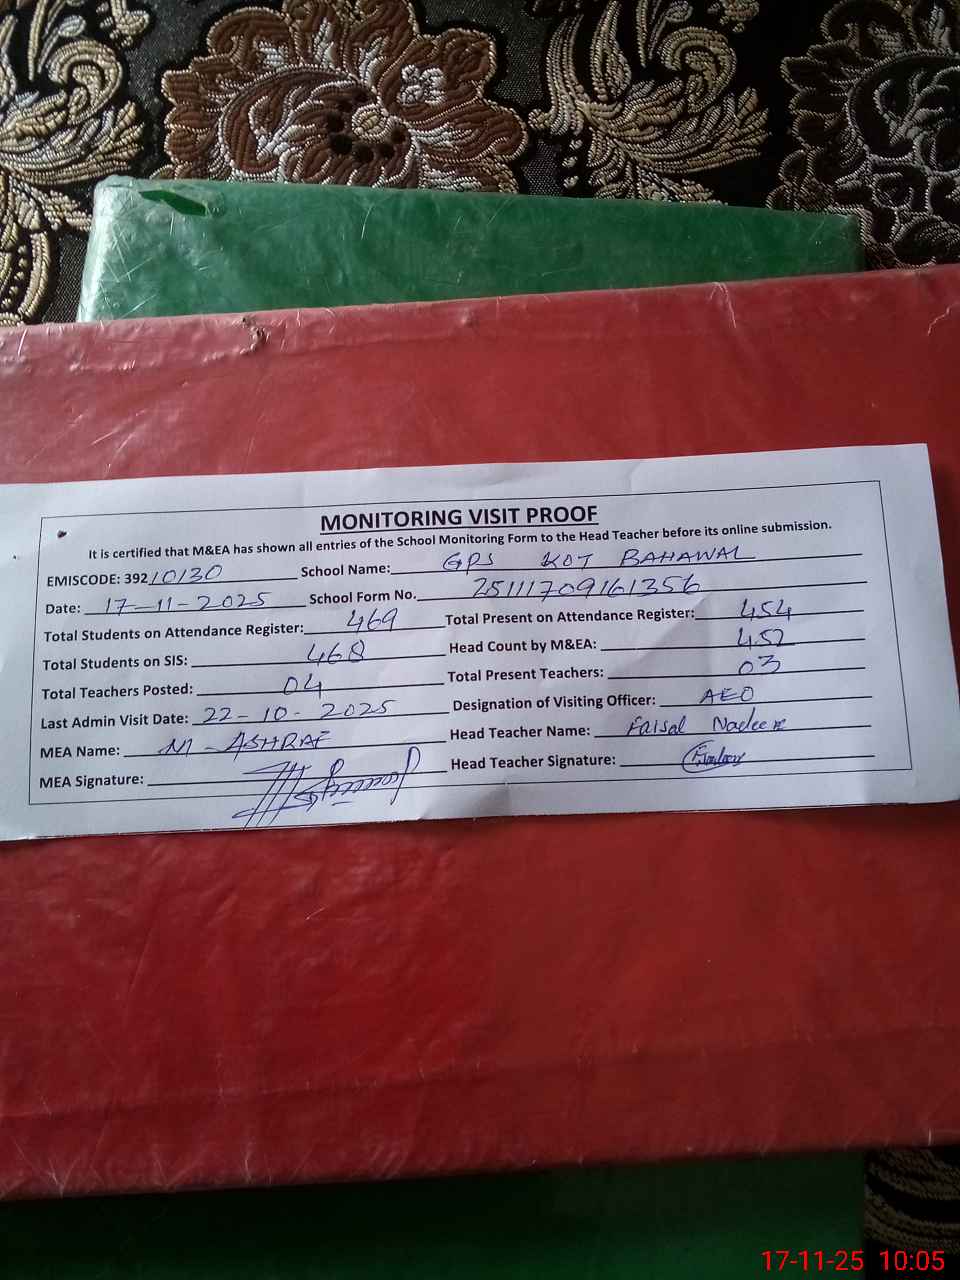 MONITORING VISIT PROOF
It is certified that M&EA has shown all entries of the School Monitoring Form to the Head Teacher before its online submission.
EMISCODE: 39210130 School Name: GPS KOT BAHAWAL
Date: 17-11-2025 School Form No. 25111709161356
Total Students on Attendance Register: 469 Total Present on Attendance Register: 454
Total Students on SIS: 468 Head Count by M&EA: 452
Total Teachers Posted: 04 Total Present Teachers: 03
Last Admin Visit Date: 22-10-2025 Designation of Visiting Officer: AEO
MEA Name: M-ASHRAF Head Teacher Name: Faisal Nadeem
MEA Signature: Head Teacher Signature:
17-11-25 10:05